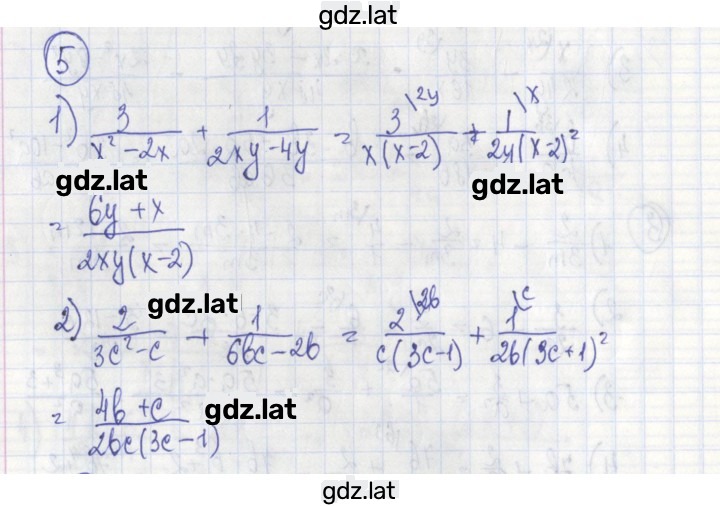 gdz.lat
5
1) 3/(x² - 2x) + 1/(2xy - 4y) = 3\2y/(x(x-2)) + 1\x/(2y(x-2)) =
gdz.lat gdz.lat
= (6y + x)/(2xy(x-2))
gdz.lat
2) 2/(3c² - c) + 1/(6bc - 2b) = 2\2b/(c(3c-1)) + 1\c/(2b(3c+1)) =
= (4b + c)/(2bc(3c - 1)) gdz.lat
gdz.lat